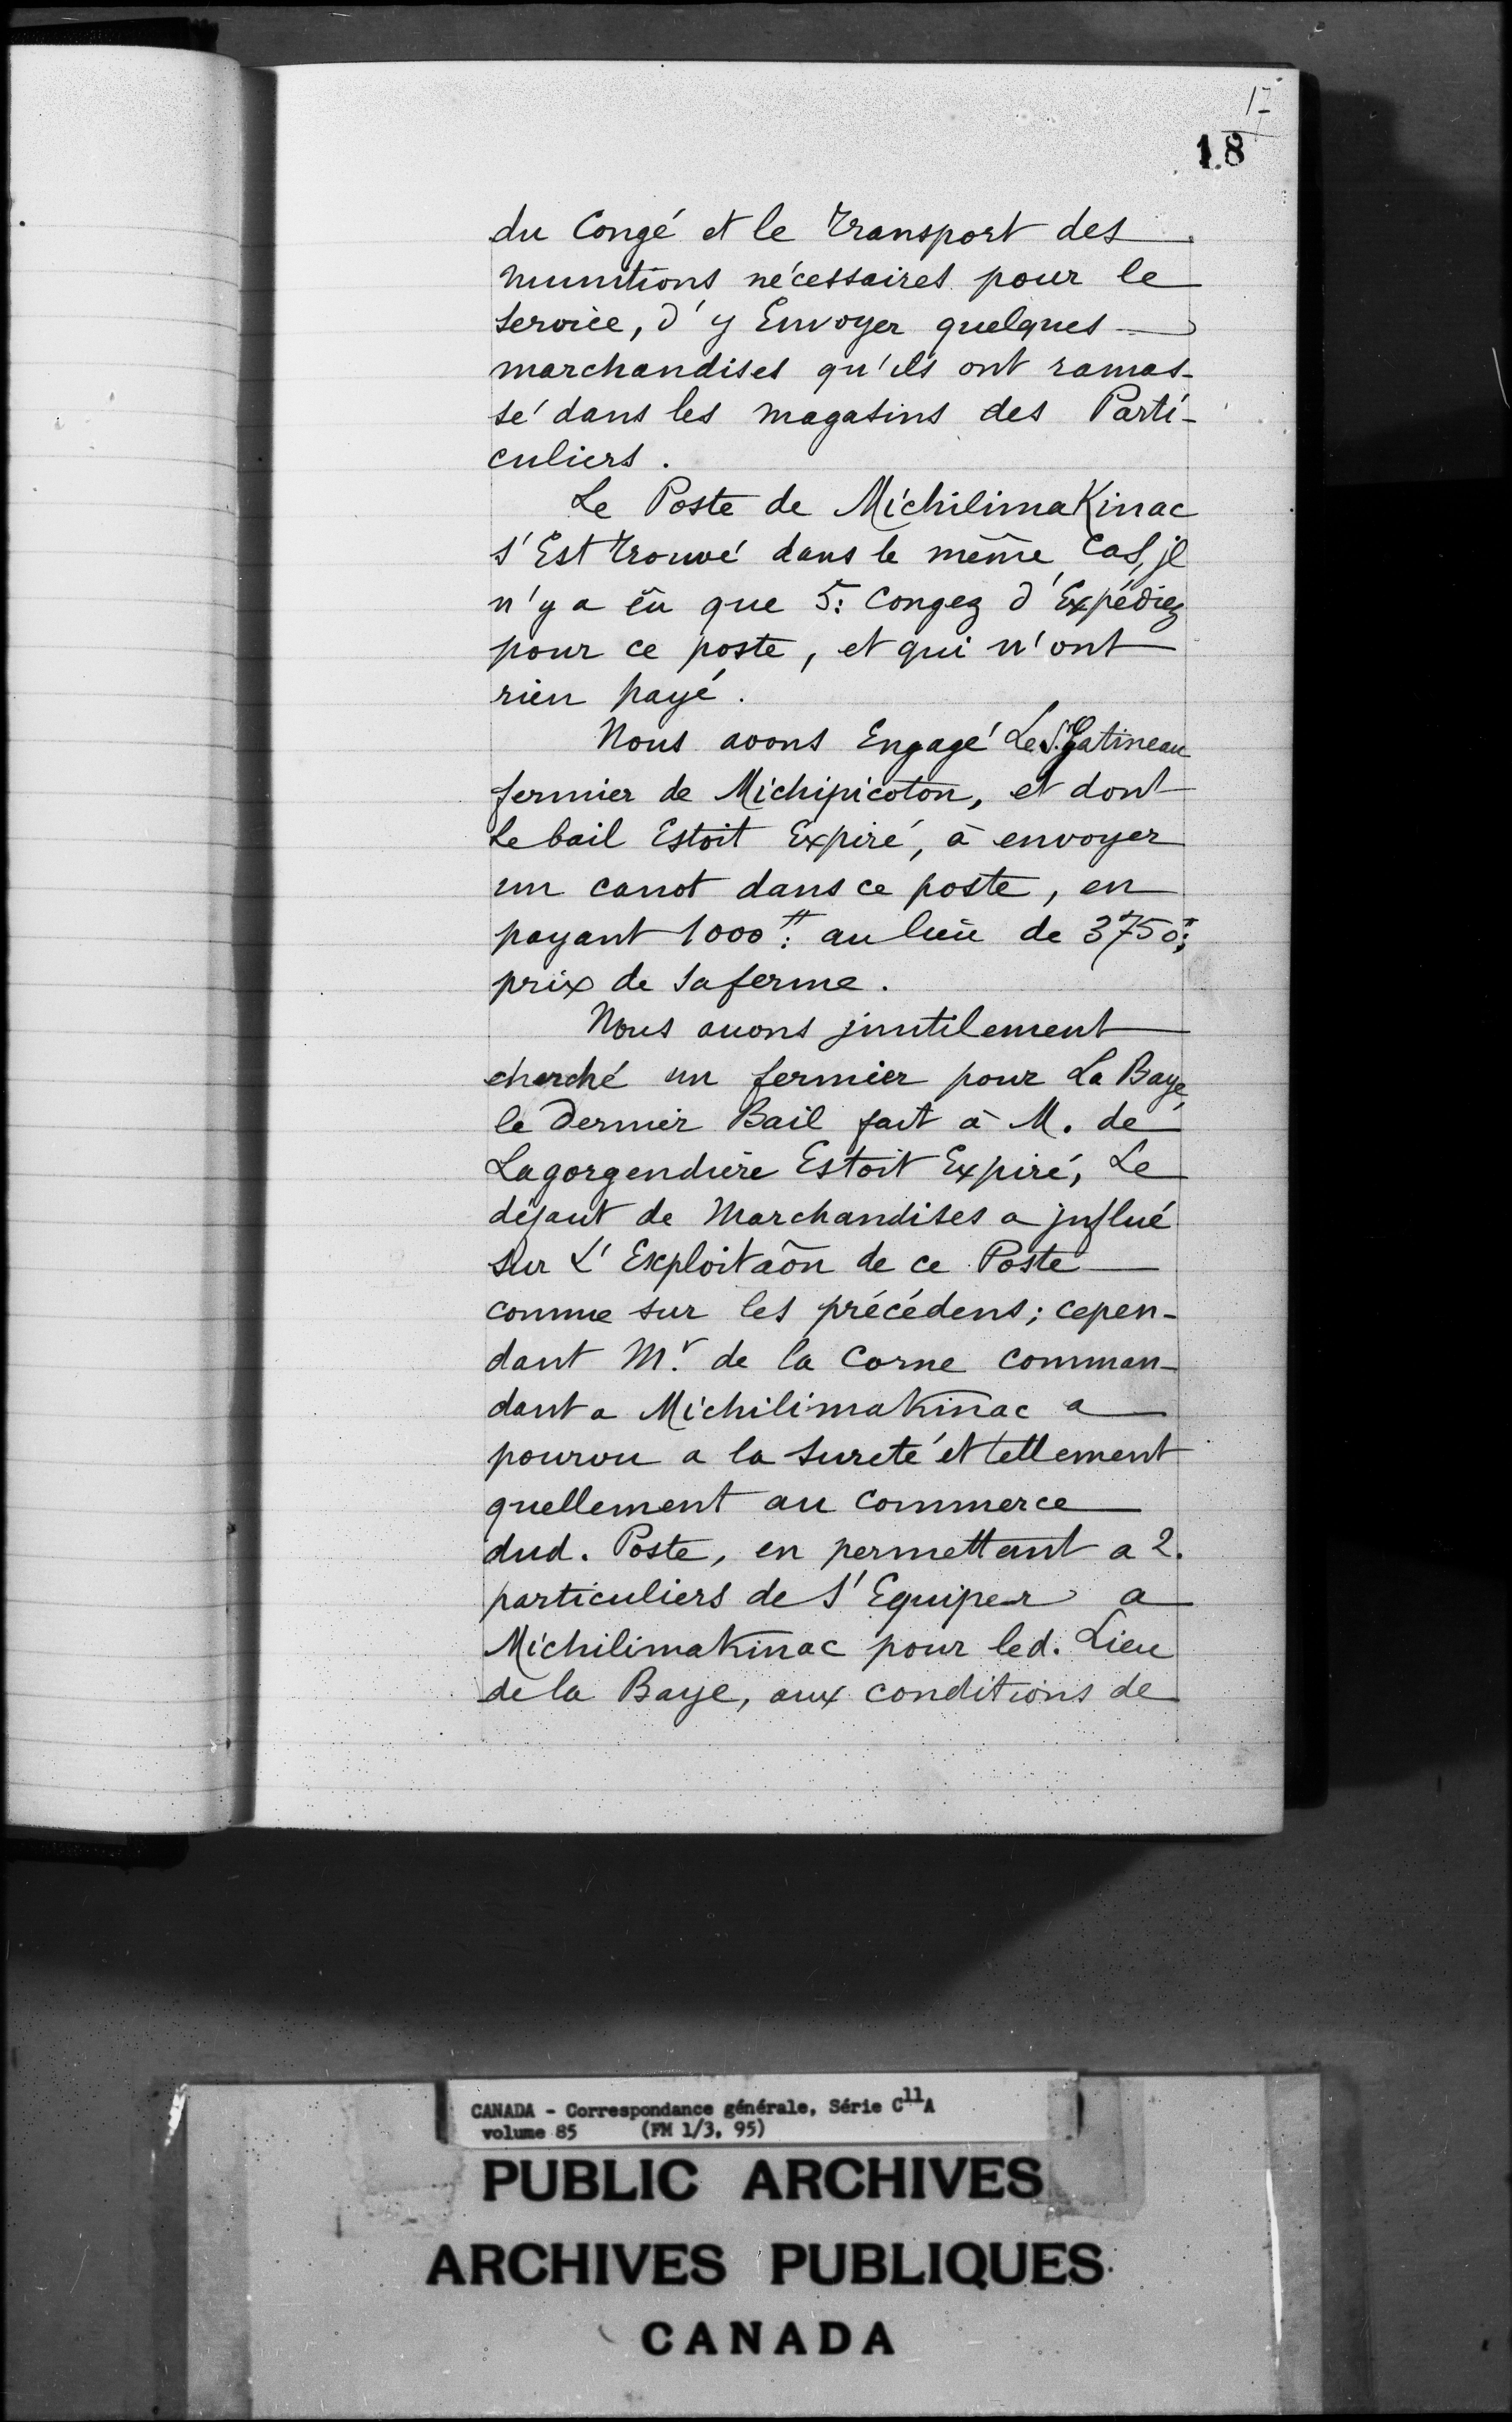 17
18
du Congé et le transport des
munitions nécessaires pour le
service, d'y Envoyer quelques
marchandises qu'ils ont ramas-
sé dans les magasins des Parti-
culiers.
Le Poste de MichilimaKinac
s'Est trouvé dans le même cas, jl
n'y a êu que 5: Congez d'Expédiez
pour ce poste, et qui n'ont
rien payé.
Nous avons Engagé Le Sr. Gatineau
fermier de Michipicoton, et dont
le bail Estoit Expiré, à envoyer
un canot dans ce poste, en
payant 1000ᵗᵗ: au lieü de 3750ᵗᵗ;
prix de sa ferme.
Nous auons jnutilement
cherché un fermier pour La Baye,
le Dernier Bail fait à M. de
Lagorgendière Estoit Expiré, Le
défaut de Marchandises a jnflué
sur L'Exploitaõn de ce Poste
comme sur les précédens; cepen-
dant Mr. de la Corne comman-
dant a MichilimaKinac a
pourvu a la sureté et tellement
quellement au Commerce
dud. Poste, en permettant a 2.
particuliers de s'Equiper a
MichilimaKinac pour led. Lieu
de la Baye, aux conditions de
CANADA - Correspondance générale, Série C11A
volume 85 (FM 1/3, 95)
PUBLIC ARCHIVES
ARCHIVES PUBLIQUES
CANADA